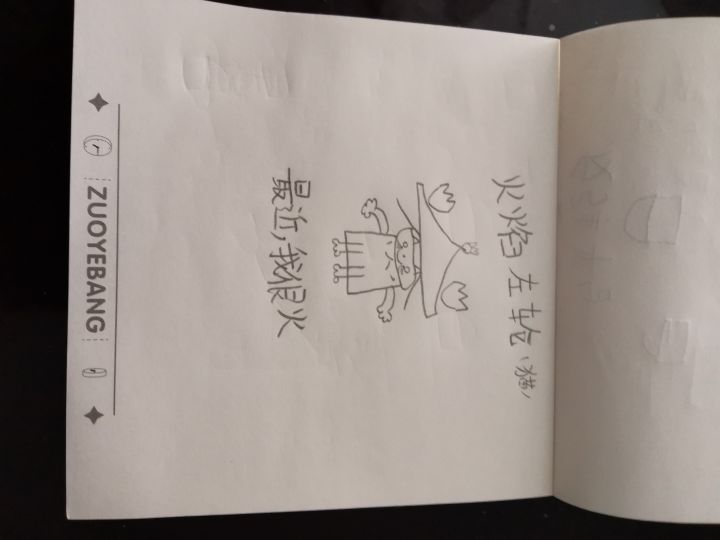 火焰左轮(猫)
最近,我很火
ZUOYEBANG